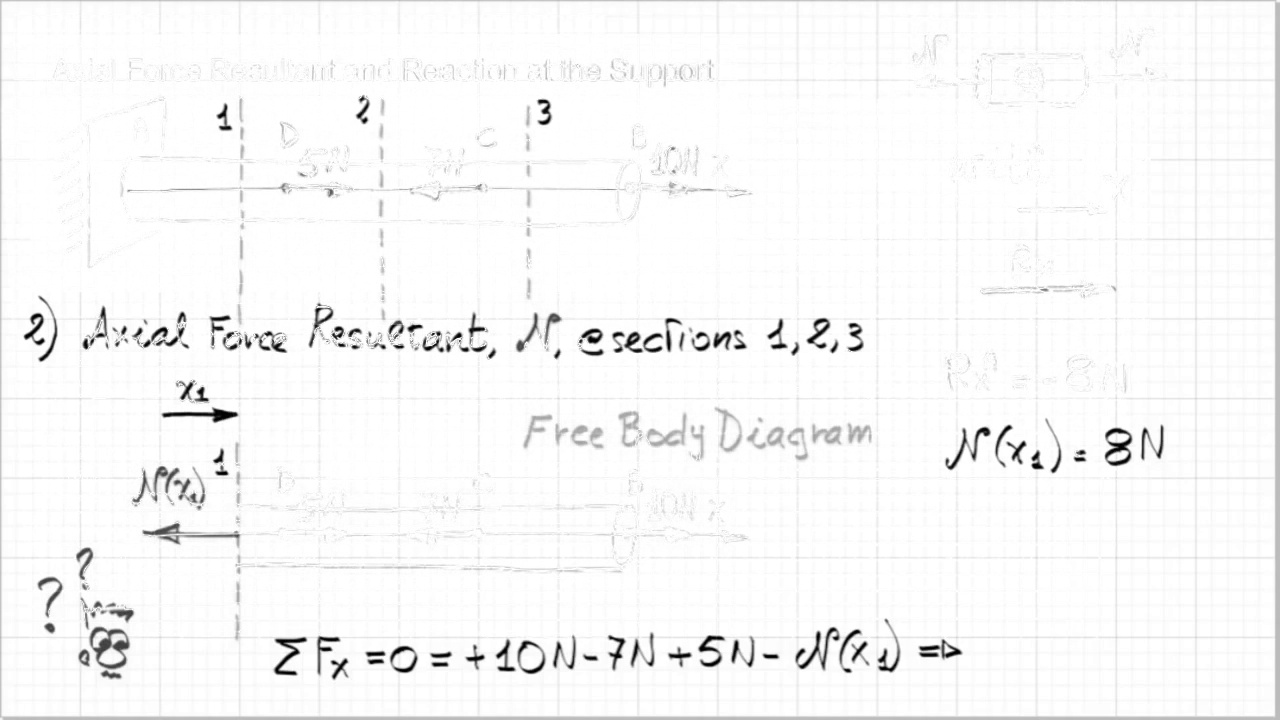 Axial Force Resultant and Reaction at the Support
1 2 3
A D 5N 7N C B 10N x
N N
x
2) Axial Force Resultant, N, @ sections 1, 2, 3
x1
Free Body Diagram
RxA = -8N
N(x1) = 8N
N(x1) 1 D 5N 7N C B 10N x
? ?
ΣFx = 0 = +10N - 7N + 5N - N(x1) =>